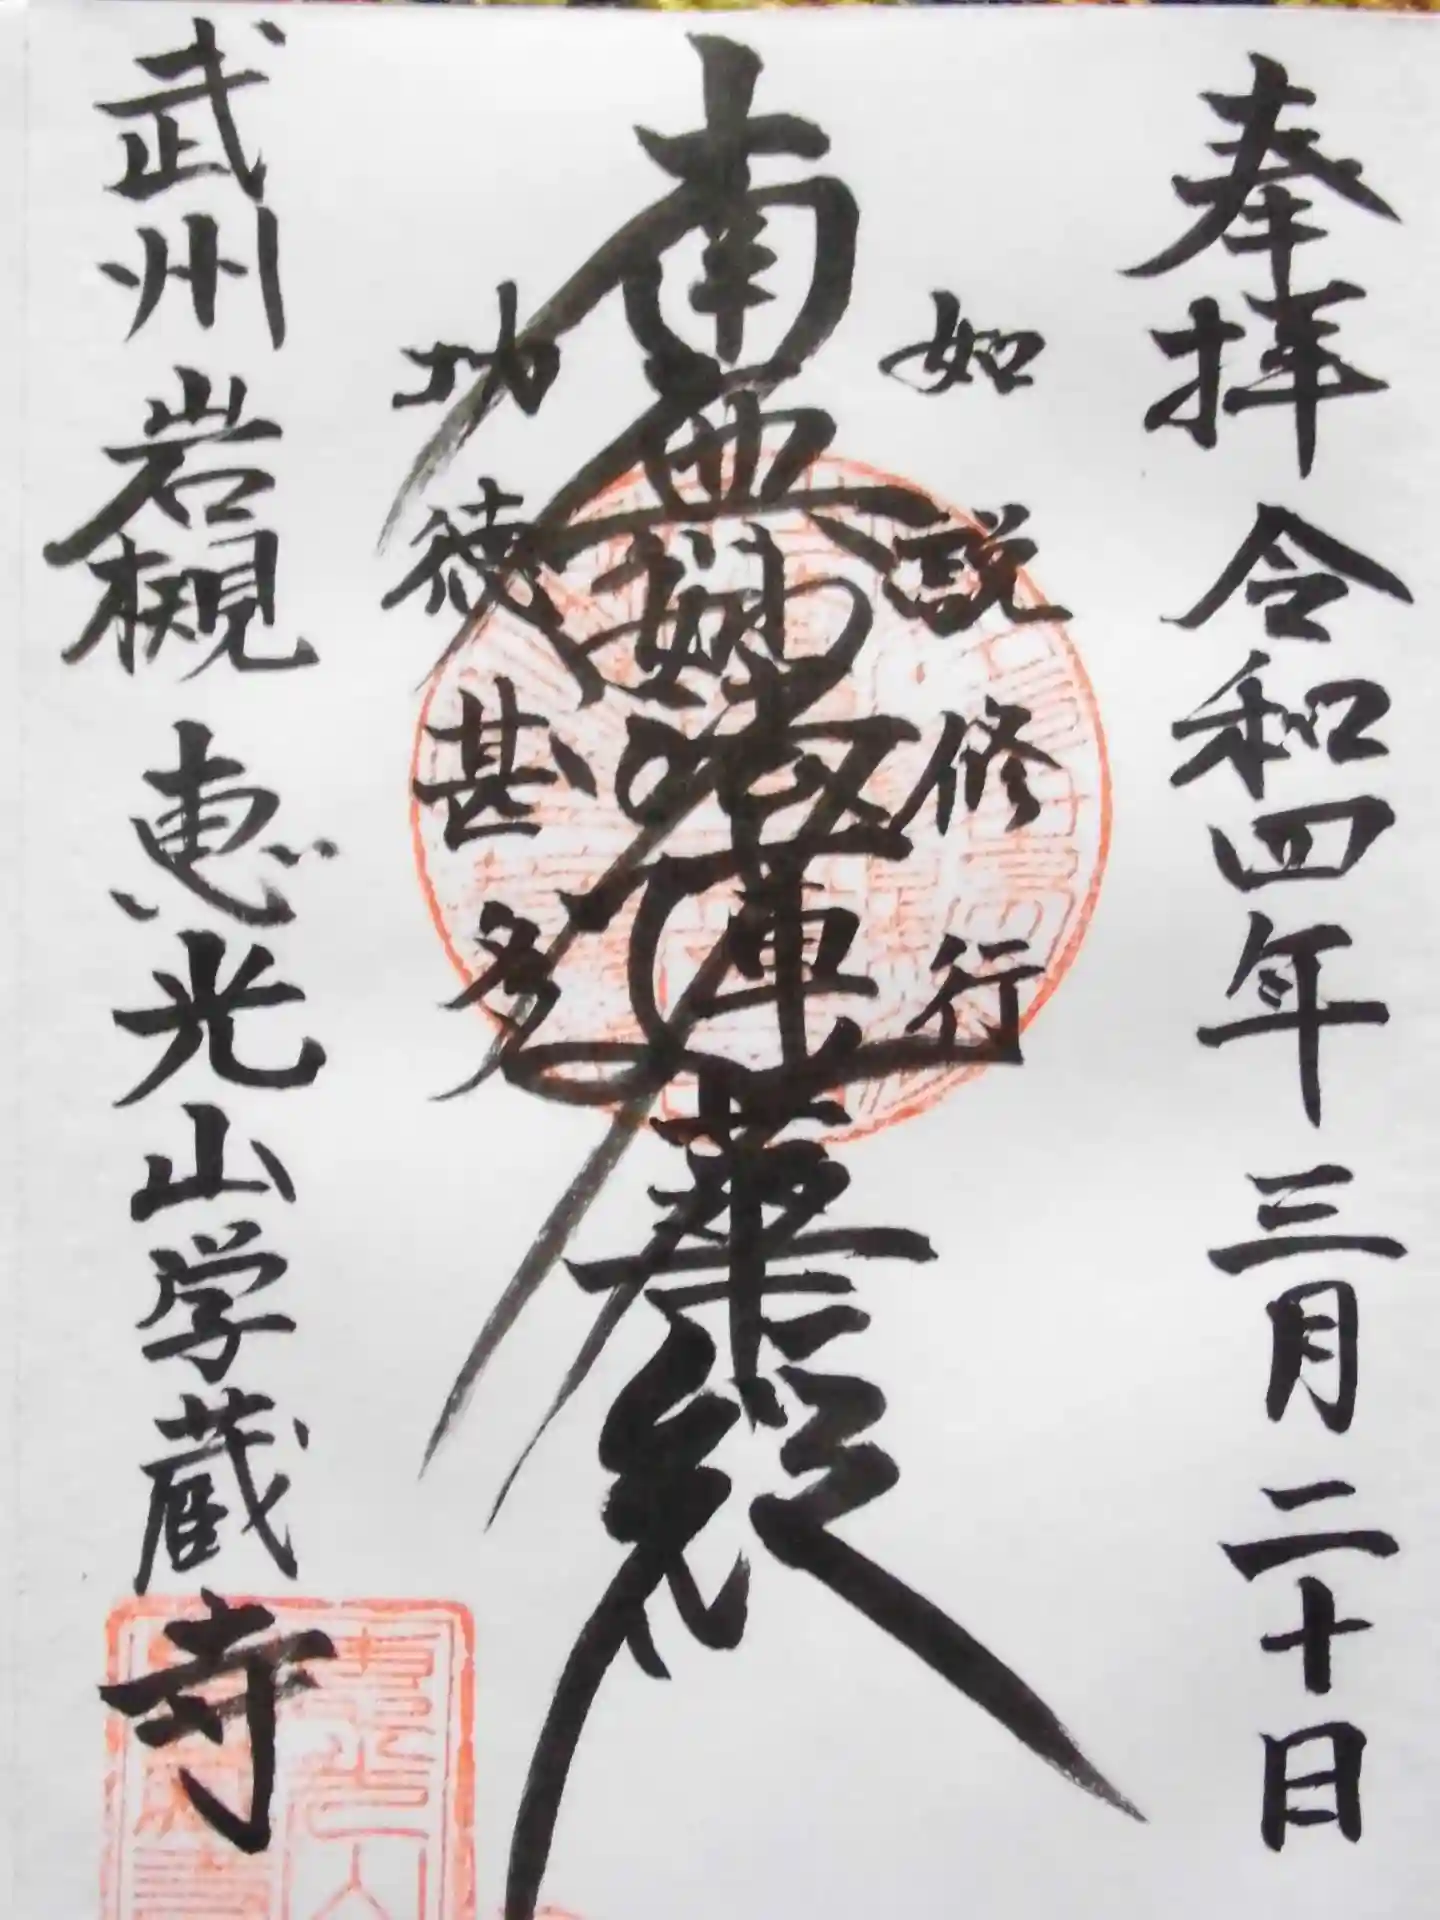 奉拝 令和四年 三月 二十日
如説修行
南無妙法蓮華経
功徳甚多
武州 岩槻 恵光山学蔵寺